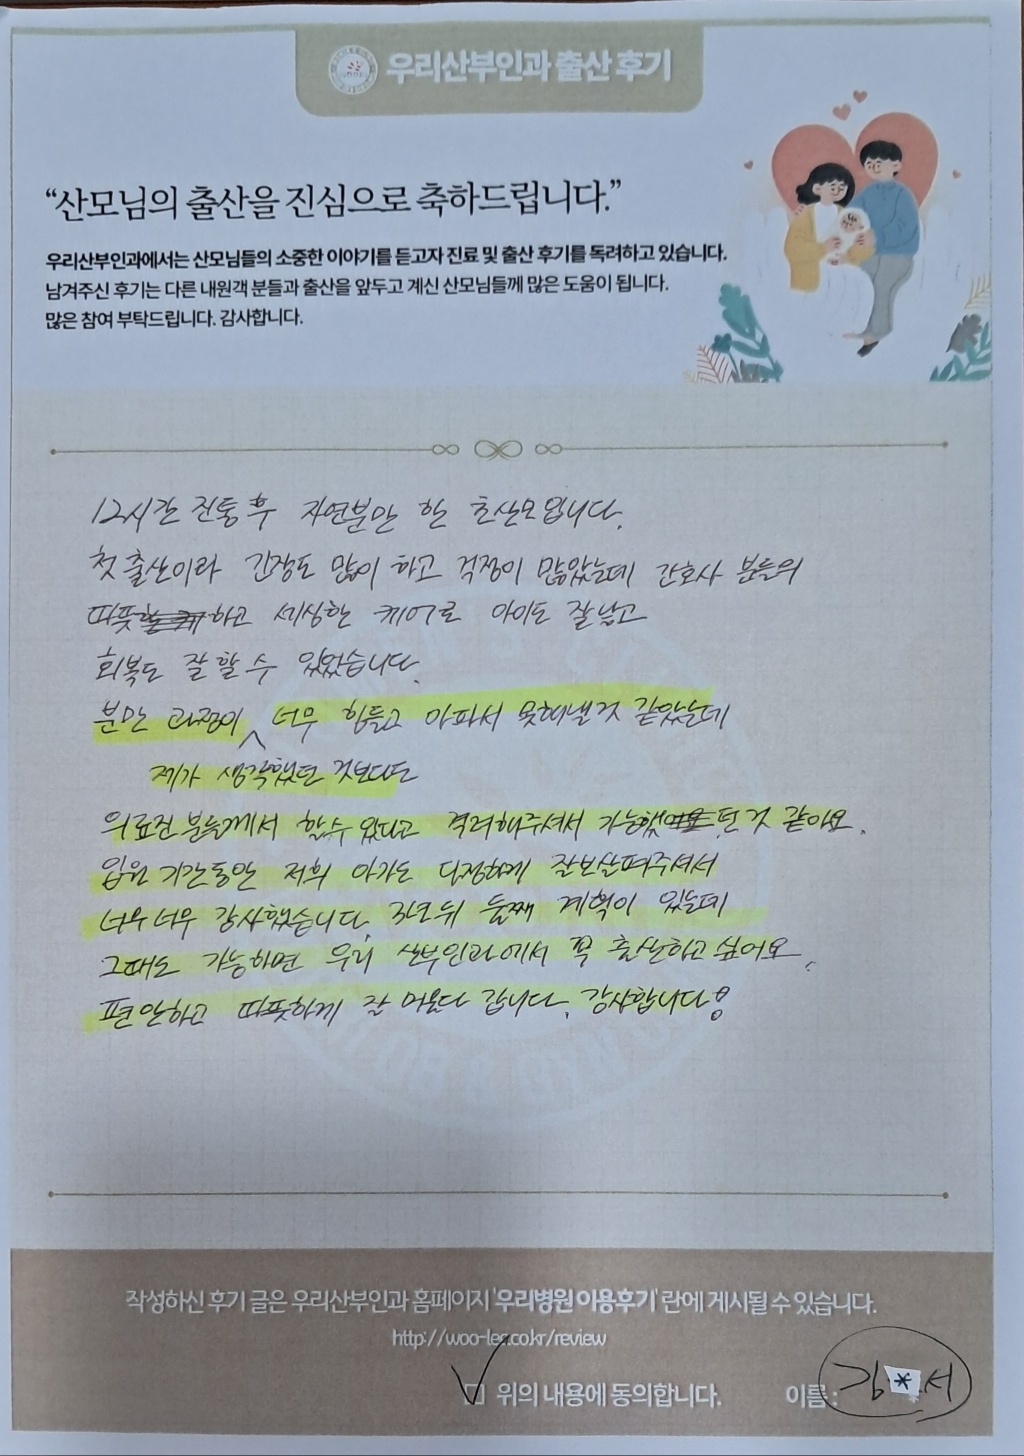 우리산부인과 출산 후기
“산모님의 출산을 진심으로 축하드립니다.”
우리산부인과에서는 산모님들의 소중한 이야기를 듣고자 진료 및 출산 후기를 독려하고 있습니다.
남겨주신 후기는 다른 내원객 분들과 출산을 앞두고 계신 산모님들께 많은 도움이 됩니다.
많은 참여 부탁드립니다. 감사합니다.
12시간 진통 후 자연분만 한 초산모입니다.
첫 출산이라 긴장도 많이 하고 걱정이 많았는데 간호사 분들의
따뜻하고 세심한 케어로 아이도 잘 낳고
회복도 잘 할 수 있었습니다.
분만 과정이 너무 힘들고 아파서 못해낼 것 같았는데
제가 생각했던 것보다도
의료진 분들께서 할 수 있다고 격려해주셔서 가능했던 것 같아요.
입원 기간동안 저희 아가도 다정하게 잘 보살펴주셔서
너무너무 감사했습니다. 3년 뒤 둘째 계획이 있는데
그때도 가능하면 우리 산부인과에서 꼭 출산하고 싶어요.
편안하고 따뜻하게 잘 머물다 갑니다. 감사합니다!
작성하신 후기 글은 우리산부인과 홈페이지 '우리병원 이용후기' 란에 게시될 수 있습니다.
http://woo-lee.co.kr/review
위의 내용에 동의합니다. 이름 : 김*서